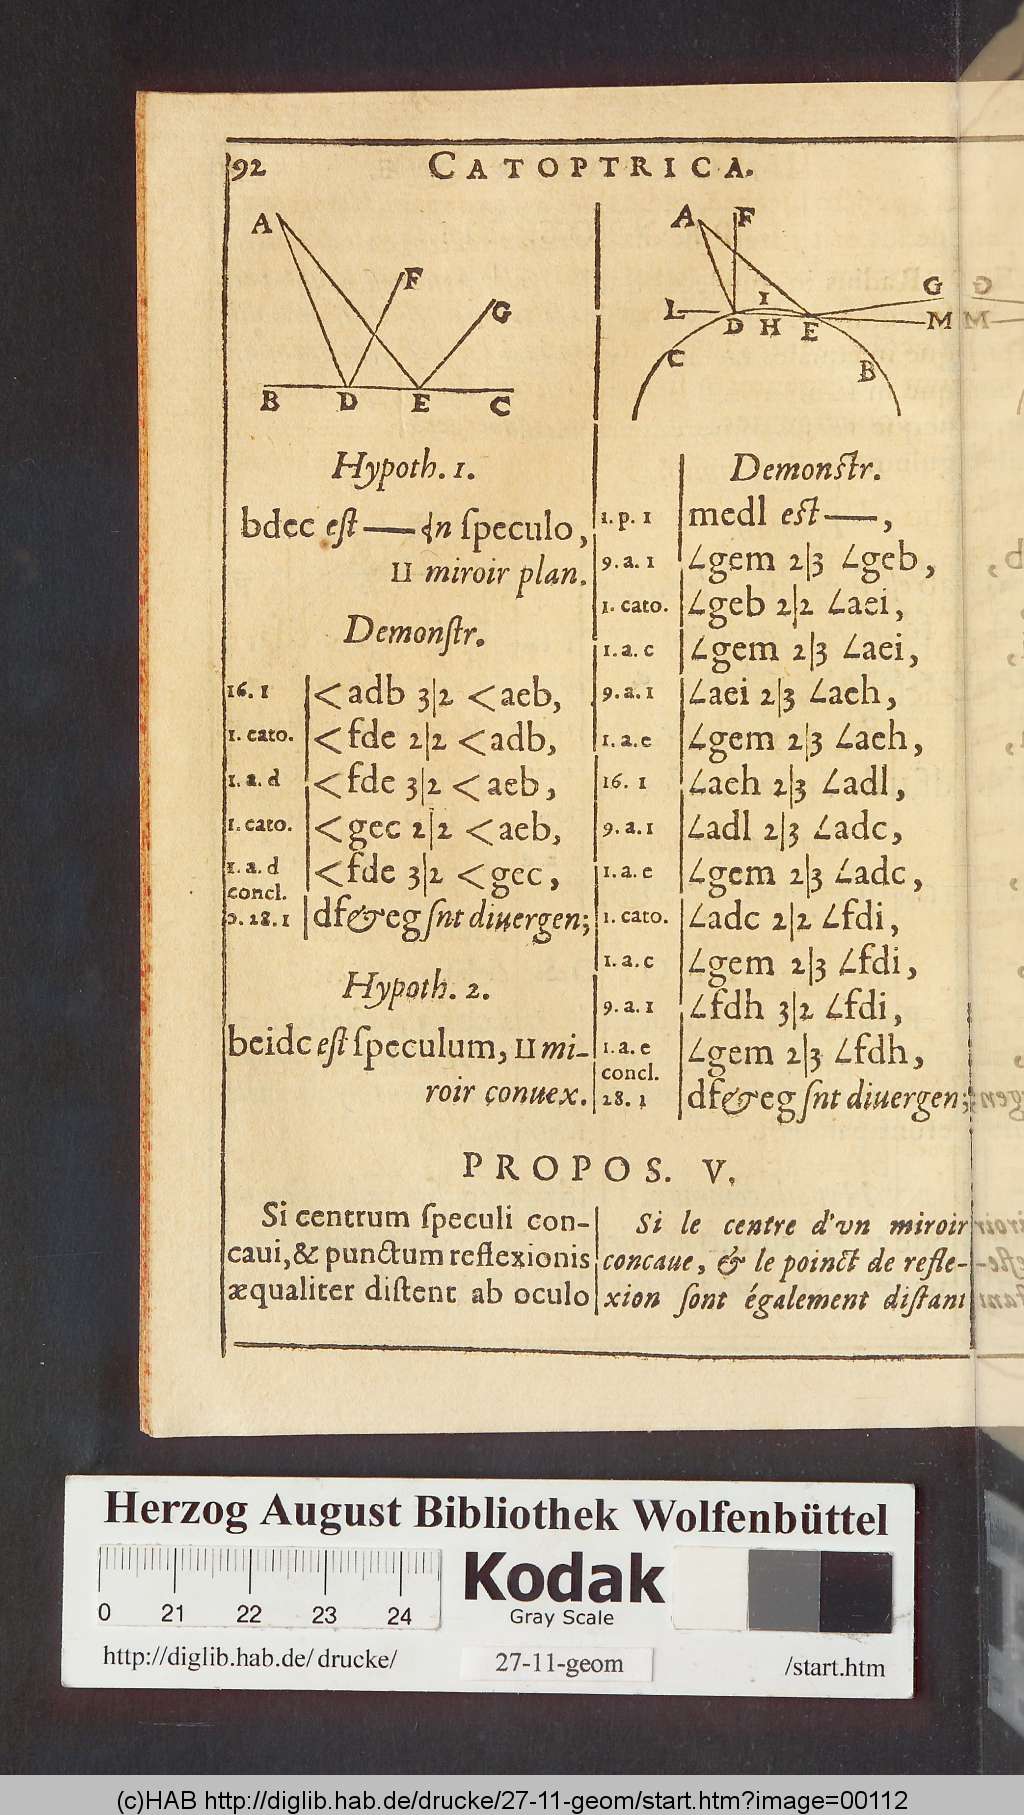 92 CATOPTRICA.
A F G B D E C
A F G L I D H E M C B
G M
Hypoth. 1.
bdec est — in speculo,
II miroir plan.
Demonstr.
16. 1 <adb 3|2 <aeb,
1. cato. <fde 2|2 <adb,
1. a. d <fde 3|2 <aeb,
1. cato. <gec 2|2 <aeb,
1. a. d <fde 3|2 <gec,
concl.
p. 28. 1 df&eg snt diuergen;
Hypoth. 2.
beidc est speculum, II mi-
roir conuex.
Demonstr.
1. p. 1 medl est —,
9. a. 1 ∠gem 2|3 ∠geb,
1. cato. ∠geb 2|2 ∠aei,
1. a. c ∠gem 2|3 ∠aei,
9. a. 1 ∠aei 2|3 ∠aeh,
1. a. e ∠gem 2|3 ∠aeh,
16. 1 ∠aeh 2|3 ∠adl,
9. a. 1 ∠adl 2|3 ∠adc,
1. a. e ∠gem 2|3 ∠adc,
1. cato. ∠adc 2|2 ∠fdi,
1. a. c ∠gem 2|3 ∠fdi,
9. a. 1 ∠fdh 3|2 ∠fdi,
1. a. e ∠gem 2|3 ∠fdh,
concl.
28. 1 df&eg snt diuergen;
PROPOS. V.
Si centrum speculi con-
caui, & punctum reflexionis
æqualiter distent ab oculo
Si le centre d'vn miroir
concaue, & le poinct de refle-
xion sont également distant
Herzog August Bibliothek Wolfenbüttel
0 21 22 23 24
Kodak
Gray Scale
http://diglib.hab.de/drucke/ 27-11-geom /start.htm
(c)HAB http://diglib.hab.de/drucke/27-11-geom/start.htm?image=00112